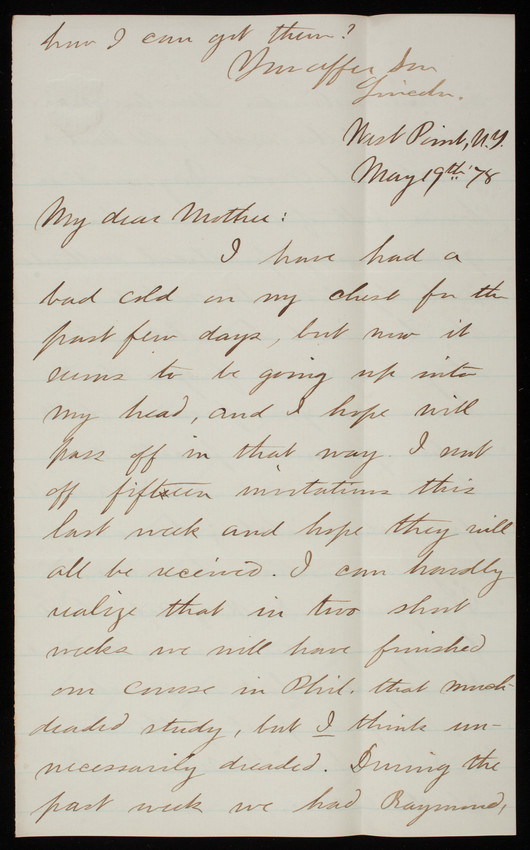 how I can get them?
Your affec Son
Lincoln.
West Point, N.Y.
May 19th '78
My dear Mother:
I have had a
bad cold on my chest for the
past few days, but now it
seems to be going up into
my head, and I hope will
pass off in that way. I sent
off fifteen invitations this
last week and hope they will
all be received. I can hardly
realize that in two short
weeks we will have finished
our course in Phil. that much
deaded study, but I think un-
necessarily dreaded. During the
past week we had Raymond,